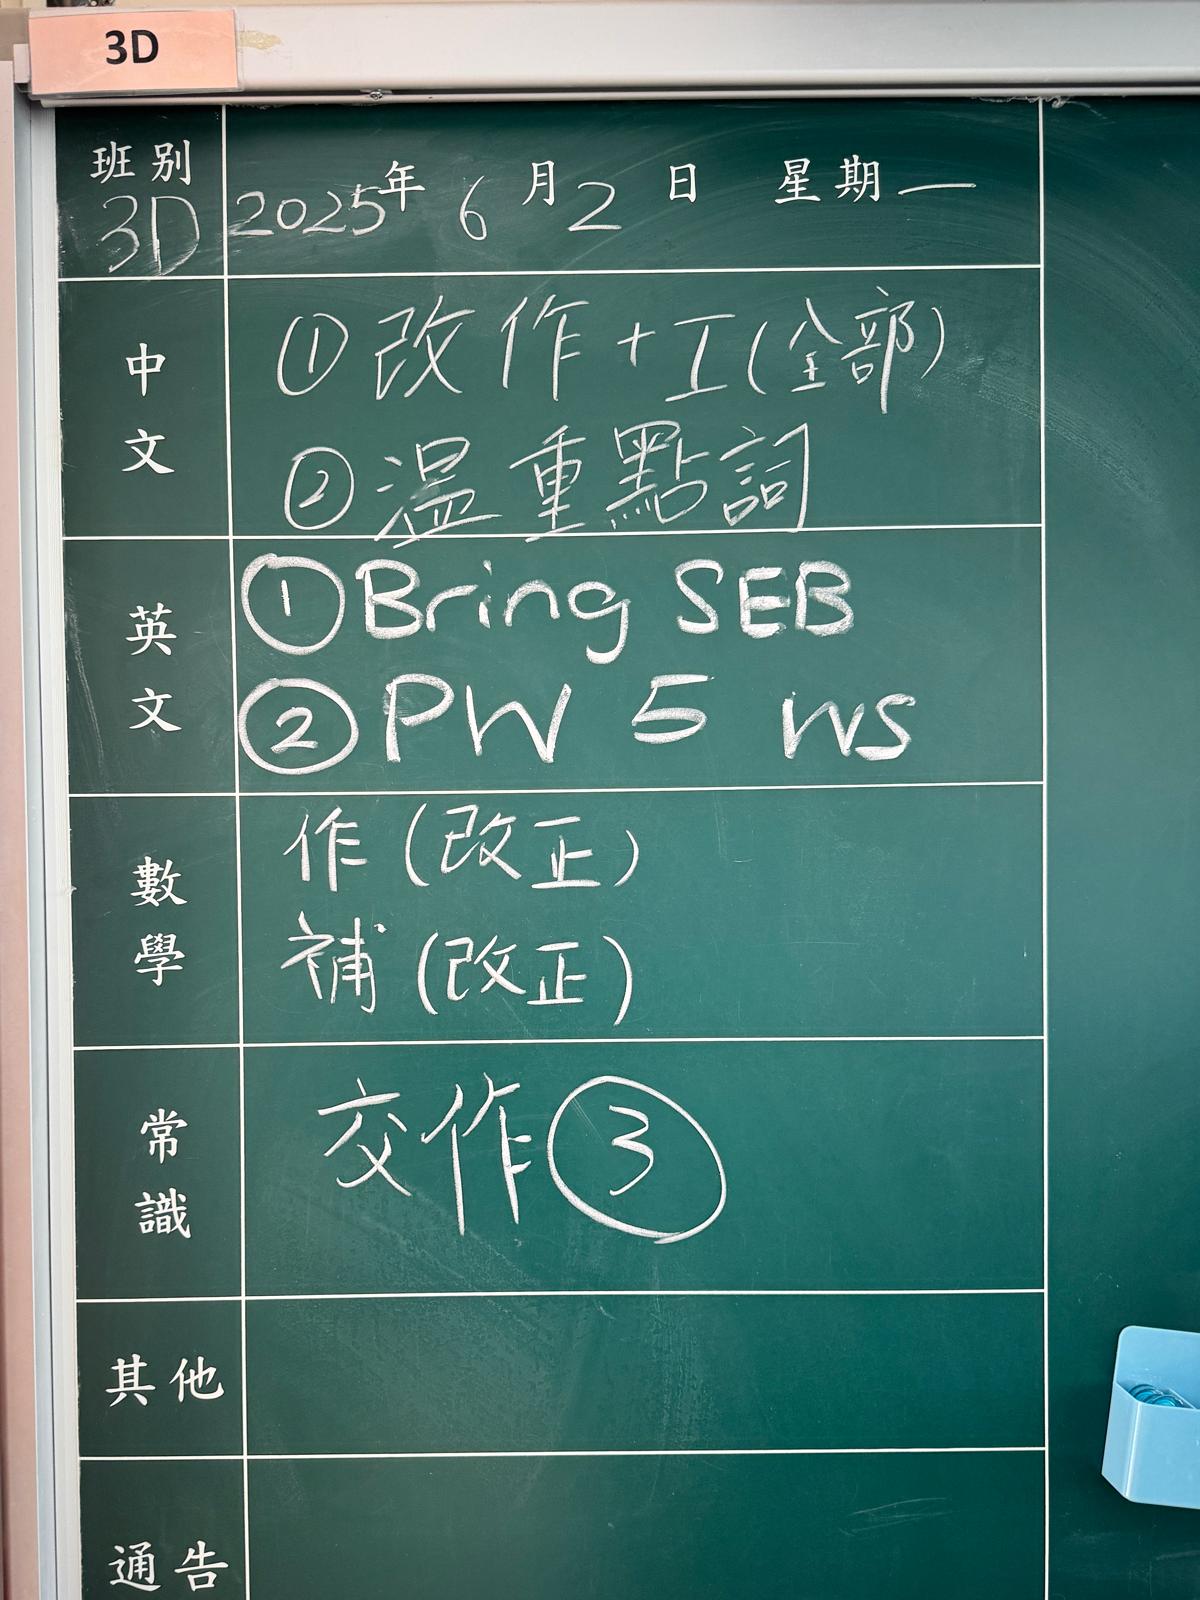 3D
班別 3D
2025年 6月2日 星期一
中文
① 改作+工(全部)
② 温重點詞
英文
① Bring SEB
② PW 5 WS
數學
作(改正)
補(改正)
常識
交作③
其他
通告